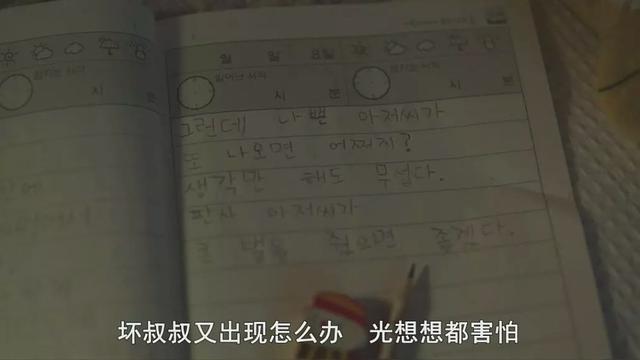 월 일 요일
일어난 시각
시 분
그런데 나쁜 아저씨가
또 나오면 어쩌지?
생각만 해도 무섭다.
판사 아저씨가
벌을 줬으면 좋겠다.
坏叔叔又出现怎么办 光想想都害怕